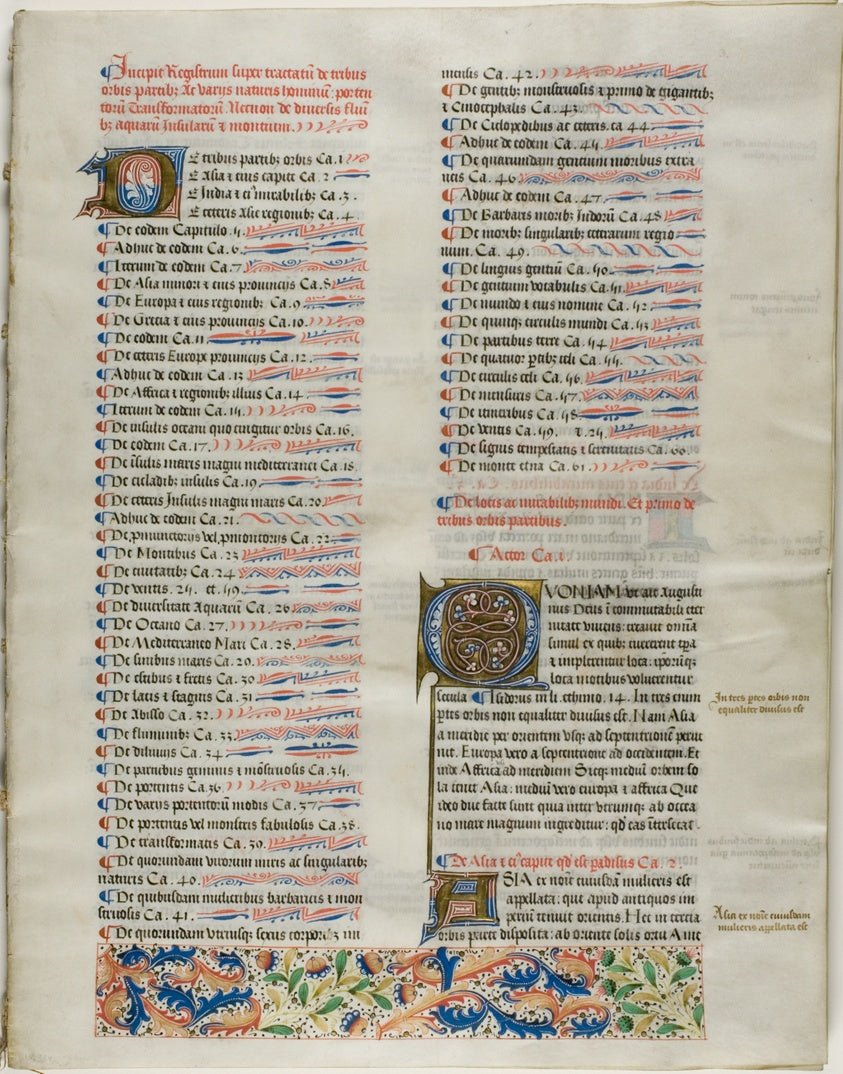 Incipit Registrum super tractatū de tribus
orbis partibꝫ Ac varijs naturis hominum: porten
torū Transformatorū. Necnon de diversis fluī
bꝫ aquarū Insularū ⁊ montium.
DE tribus partibꝫ orbis Ca. 1
E Asia ⁊ eius capite Ca. 2
E India ⁊ eiꝰ mirabilibꝫ Ca. 3.
E ceteris Asie regionibꝫ Ca. 4.
De eodem Capitulo. 5.
Adhuc de eodem Ca. 6.
Iterum de eodem Ca. 7.
De Asia minori ⁊ eius provincijs Ca. 8
De Europa ⁊ eius regionibꝫ Ca. 9
De Grecia ⁊ eius provincijs Ca. 10.
De eodem Ca. 11.
De ceteris Europe provincijs Ca. 12.
Adhuc de eodem Ca. 13
De Affrica ⁊ regionibꝫ illius Ca. 14
Iterum de eodem Ca. 15.
De insulis oceani quo cingitur orbis Ca. 16.
De eodem Ca. 17.
De īsulis maris magni mediterranei Ca. 18.
De cicladibꝫ insulis Ca. 19.
De ceteris Insulis magni maris Ca. 20.
Adhuc de eodem Ca. 21.
De ꝓmunctoriis vel ꝓmontorijs Ca. 22
De Montibus Ca. 23
De civitatibꝫ Ca. 24
De ventis. 25. et. 59.
De diversitate Aquarū Ca. 26
De Oceano Ca. 27.
De Mediterraneo Mari Ca. 28.
De sinibus maris Ca. 29.
De estibus ⁊ fretis Ca. 30
De lacis ⁊ stagnis Ca. 31
De Abisso Ca. 32
De fluminibꝫ Ca. 33
De diluvijs Ca. 34
De partubus geminis ⁊ mōstruosis Ca. 35.
De portentis Ca. 36.
De varijs portentorū modis Ca. 37.
De portentis vel monstris fabulosis Ca. 38.
De transformatis Ca. 39.
De quorundam virorum miris ac singularibꝫ
naturis Ca. 40.
De quibusdam mulieribus barbaricis ⁊ mon
struosis Ca. 41.
De quorundam utriusqꝫ sexus corporibꝫ im
mensis Ca. 42.
De gentibꝫ monstruosis ⁊ primo de gigantibꝫ
⁊ Cinocephalis Ca. 43.
De Ciclopedibus ac ceteris. ca 44
Adhuc de eodem Ca. 45
De quarundam gentium moribus extra
neis Ca. 46
Adhuc de eodem Ca. 47.
De Barbaris moribꝫ Indorū Ca. 48
De moribꝫ singularibꝫ ceterarum regio
num. Ca. 49.
De linguis gentiū Ca. 50.
De gentium vocabulis Ca. 51.
De mundo ⁊ eius nomine Ca. 52
De quinqꝫ circulis mundi Ca. 53
De partibus terre Ca. 54
De quatuor ꝑtibꝫ celi Ca. 55.
De circulis celi Ca. 56.
De mensuris Ca. 57.
De itineribus Ca. 58
De ventis Ca. 59. ⁊. 25.
De signis tempestatis ⁊ serenitatis Ca. 60.
De monte etna Ca. 61.
De locis ac mirabilibꝫ mundi. Et primo de
tribus orbis partibus.
Actor Ca. 1.
QVONIAM ut ait Augusti
nus Deus ī commutabili eter
nitate vivens: creavit omīa
simul ex quibꝫ currerent tꝑa
⁊ implerentur loca: ipsorūqꝫ
loca motibus volverentur
secula Isidorus in li. ethimo. 14. In tres enim
ꝑtes orbis non equaliter divisus est. Nam Asia
a meridie per orientem usqꝫ ad septentrionē perve
nit. Europa vero a septentrione ad occidentem. Et
inde Affrica ad meridiem Sicqꝫ mediū orbem so
la tenet Asia: mediū vero europa ⁊ affrica Que
ideo due facte sunt quia inter utrumqꝫ ab ocea
no mare magnum ingreditur: qđ eas ītersecat
De Asia ⁊ eiꝰ capite qđ est ꝑadisus Ca. 2.
ASIA ex noīe cuiusdam mulieris est
appellata: que apud antiquos im
perium tenuit orientis. Hec in tercia
orbis parte disposita: ab oriente solis ortu A me
In tres ꝑtes orbis non
equaliter divisus est
Asia ex noīe cuiusdam
mulieris appellata est